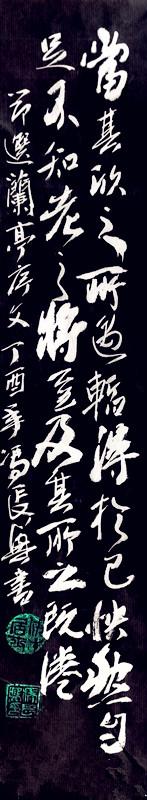 當其欣之所遇暫得於己快然自
足不知老之將至及其所之既倦
節選蘭亭序文丁酉年馮長興書